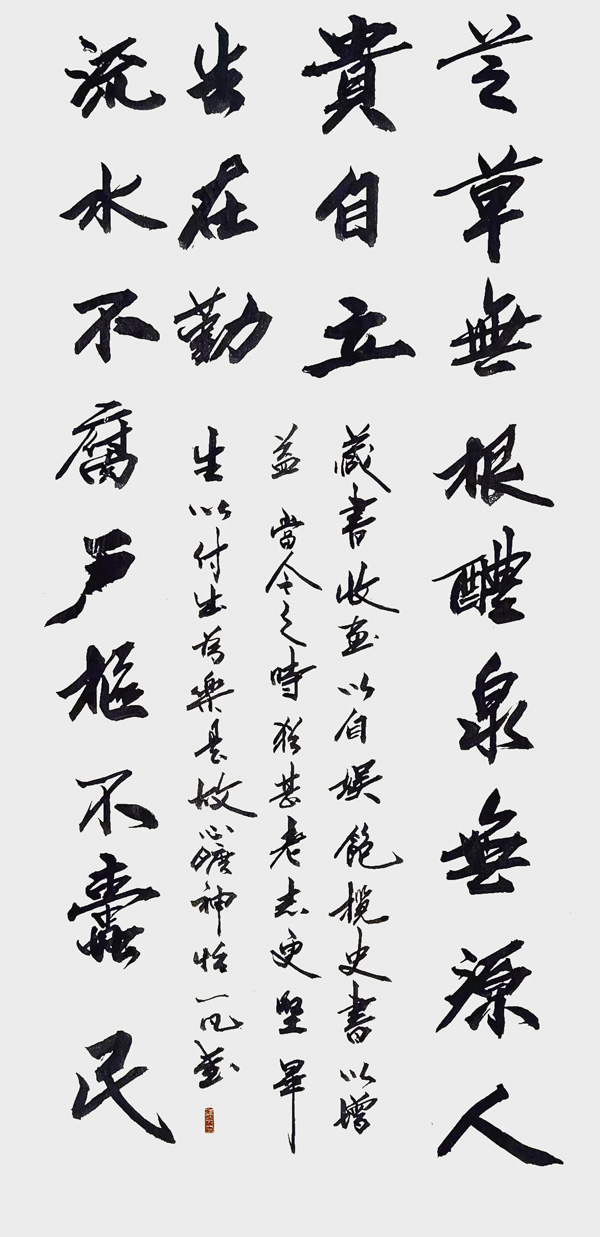 芝草無根醴泉無源人
貴自立
流水不腐戶樞不蠹民
生在勤
藏書收画以自娱飽攬史書以增
益當今之時猶甚老志更堅畢
生以付出為樂是故心曠神怡一凡